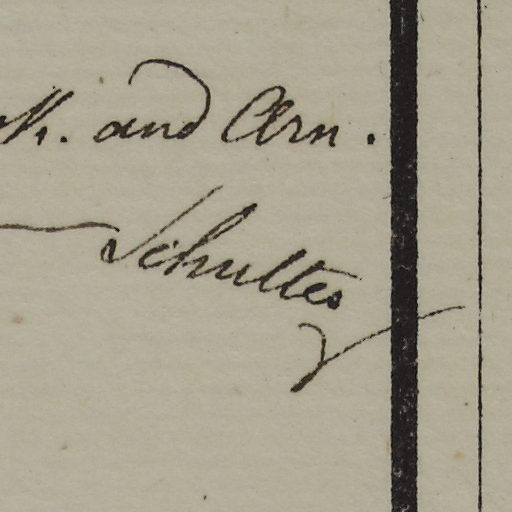 and Arn.
Schultes